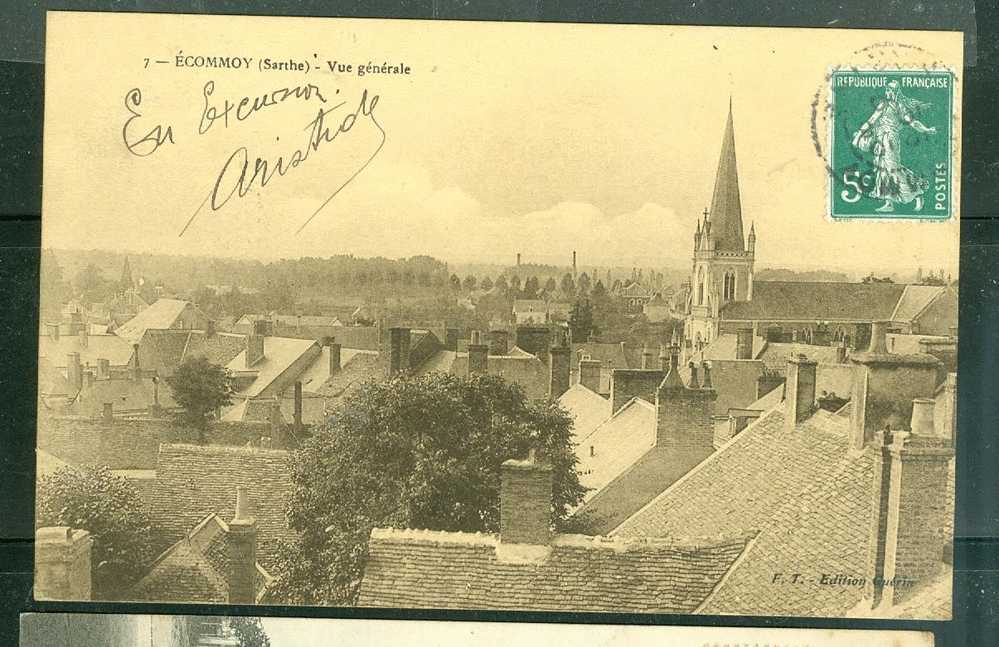 7 — ÉCOMMOY (Sarthe) - Vue générale
En Excursion.
Aristide
REPUBLIQUE FRANÇAISE
5c
POSTES
F. T. - Edition Guérin